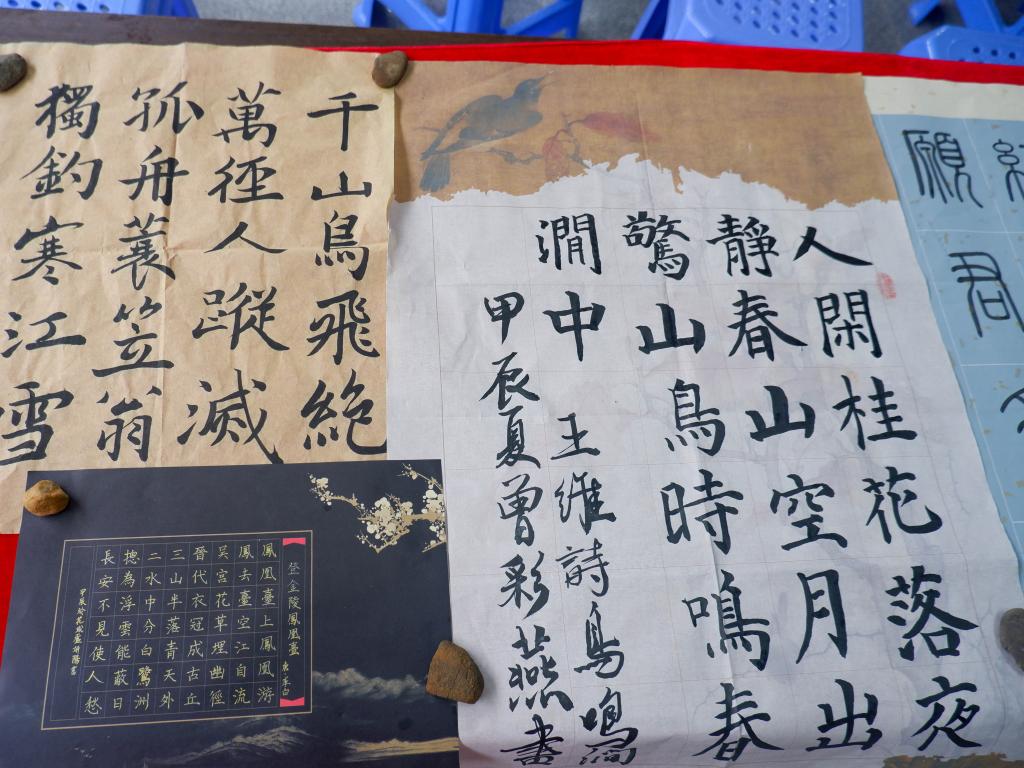 千山鳥飛絕
萬徑人蹤滅
孤舟蓑笠翁
獨釣寒江雪
人閑桂花落夜
靜春山空月出
驚山鳥時鳴春
澗中 王維詩鳥鳴澗
甲辰夏曾彩燕書
登金陵鳳凰臺 唐李白
鳳凰臺上鳳凰游
鳳去臺空江自流
吳宮花草埋幽徑
晉代衣冠成古丘
三山半落青天外
二水中分白鷺洲
摠為浮雲能蔽日
長安不見使人愁
甲辰
願君